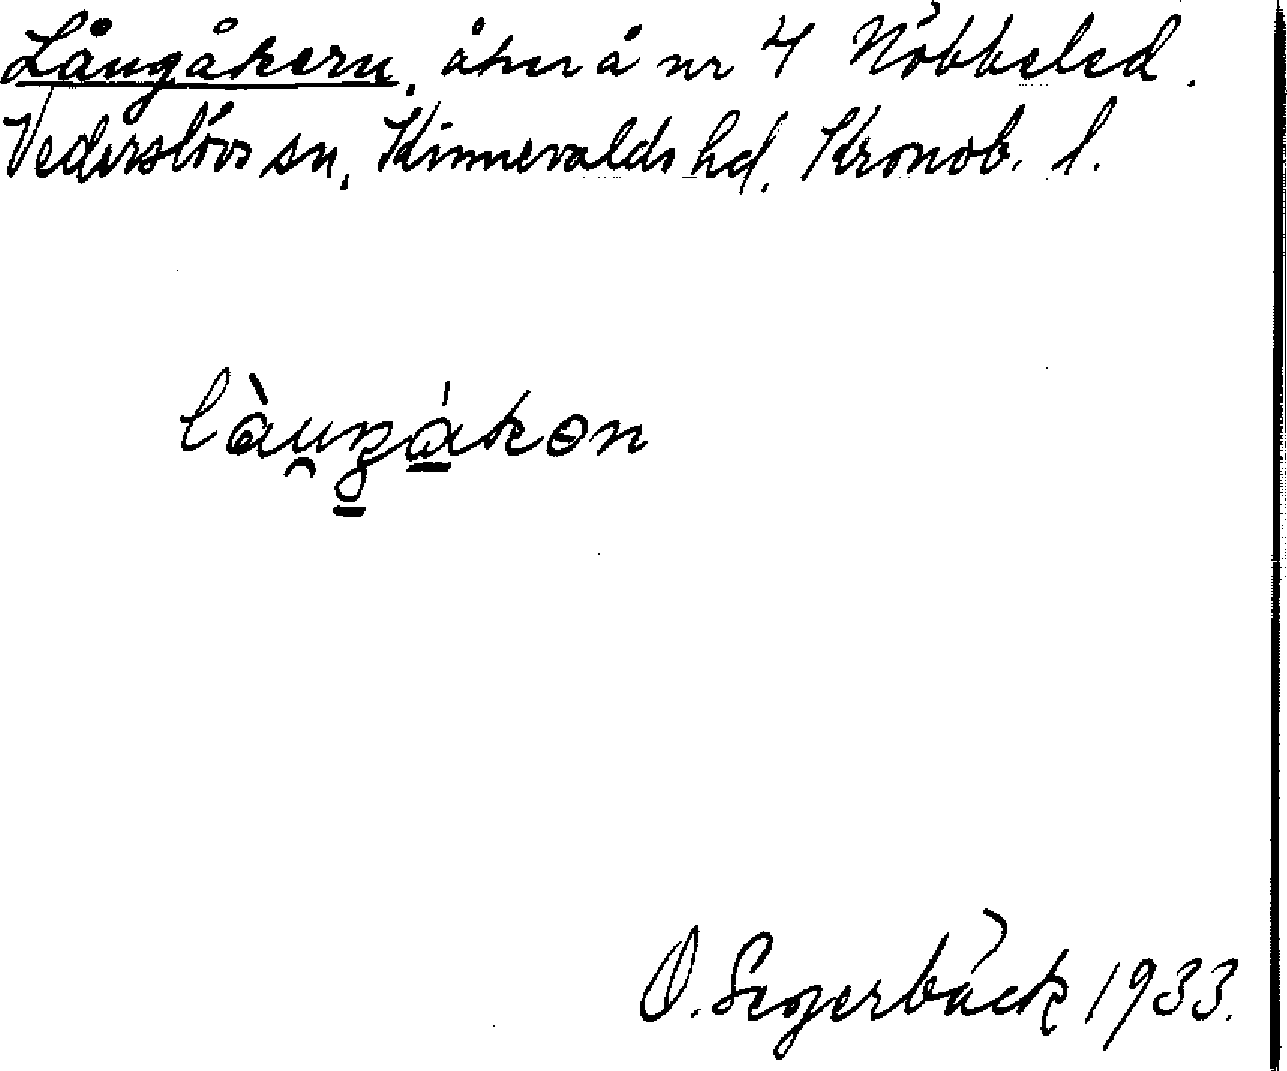 Långåkern, åker å nr 4 Nöbbeled.
Vederslövs sn, Kinnevalds hd, Kronob. l.
O. Segerbäck 1933.